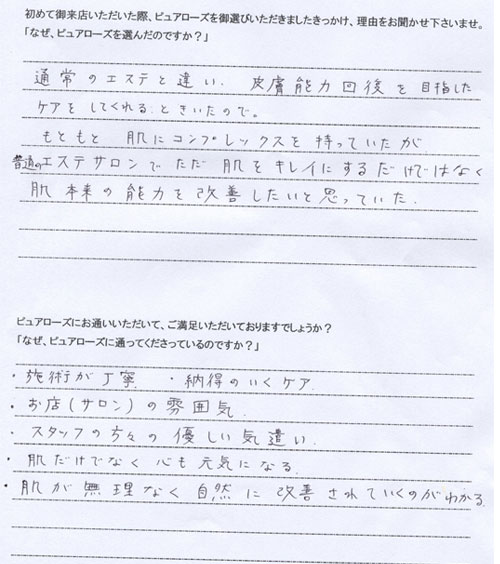 初めて御来店いただいた際、ピュアローズを御選びいただきましたきっかけ、理由をお聞かせ下さいませ。
「なぜ、ピュアローズを選んだのですか?」
通常のエステと違い、皮膚能力回後を目指した
ケアをしてくれるときいたので。
もともと 肌にコンプレックスを持っていたが
普通のエステサロンでただ 肌をキレイにするだけではなく
肌本来の能力を改善したいと思っていた.
ピュアローズにお通いいただいて、ご満足いただいておりますでしょうか?
「なぜ、ピュアローズに通ってくださっているのですか?」
・施術が丁寧 ・納得のいくケア.
・お店(サロン)の雰囲気.
・スタッフの方々の優しい気遣い.
・肌だけでなく心も元気になる.
・肌が無理なく自然に改善されていくのがわかる.